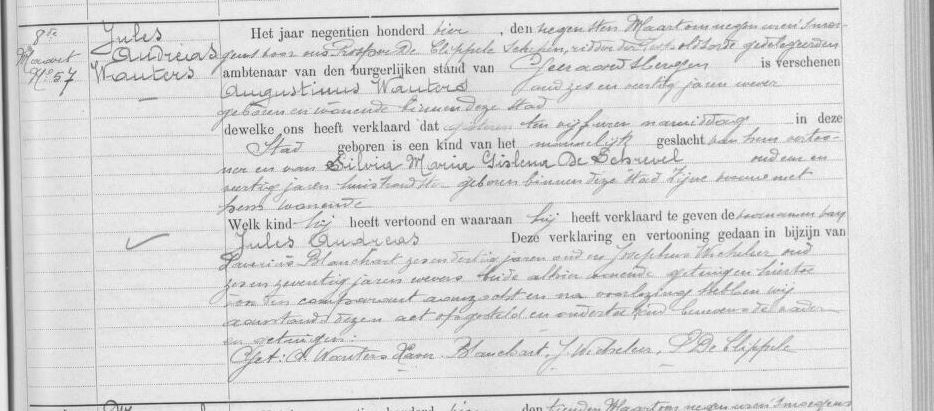 8ste
Maart
No 57
Jules
Andreas
Wauters
Het jaar negentien honderd vier, den negensten Maart om negen uren 's mor-
gens voor ons Prosper De Clippele Schepen, ridder der orde gedelegeerden
ambtenaar van den burgerlijken stand van Geeraardsbergen is verschenen
Augustinus Wauters oud zes en veertig jaren wever
geboren en wonende binnen deze stad
dewelke ons heeft verklaard dat gisteren ten vijf uren namiddag in deze
Stad geboren is een kind van het mannelijk geslacht van hem vertoo-
ner en van Silvia Maria Gislena De Schrevel oud een en
veertig jaren huishoudster geboren binnen deze stad zijne vrouw met
hem wonende
Welk kind hij heeft vertoond en waaraan hij heeft verklaard te geven de voornamen van
Jules Andreas Deze verklaring en vertooning gedaan in bijzijn van
Blanchart zes en dertig jaren oud en Josephus Wichelen oud
zes en zeventig jaren wevers beide alhier wonende getuigen hiertoe
door den comparant aanzocht en na voorlezing hebben wij
aanstonds dezen act opgesteld en onderteekend benevens de vader
en getuigen:
Get: A. Wauters Xaver. Blanchart, J. Wichelen, P De Clippele
negentien honderd vier den tienden Maart om negen uren 's morgens